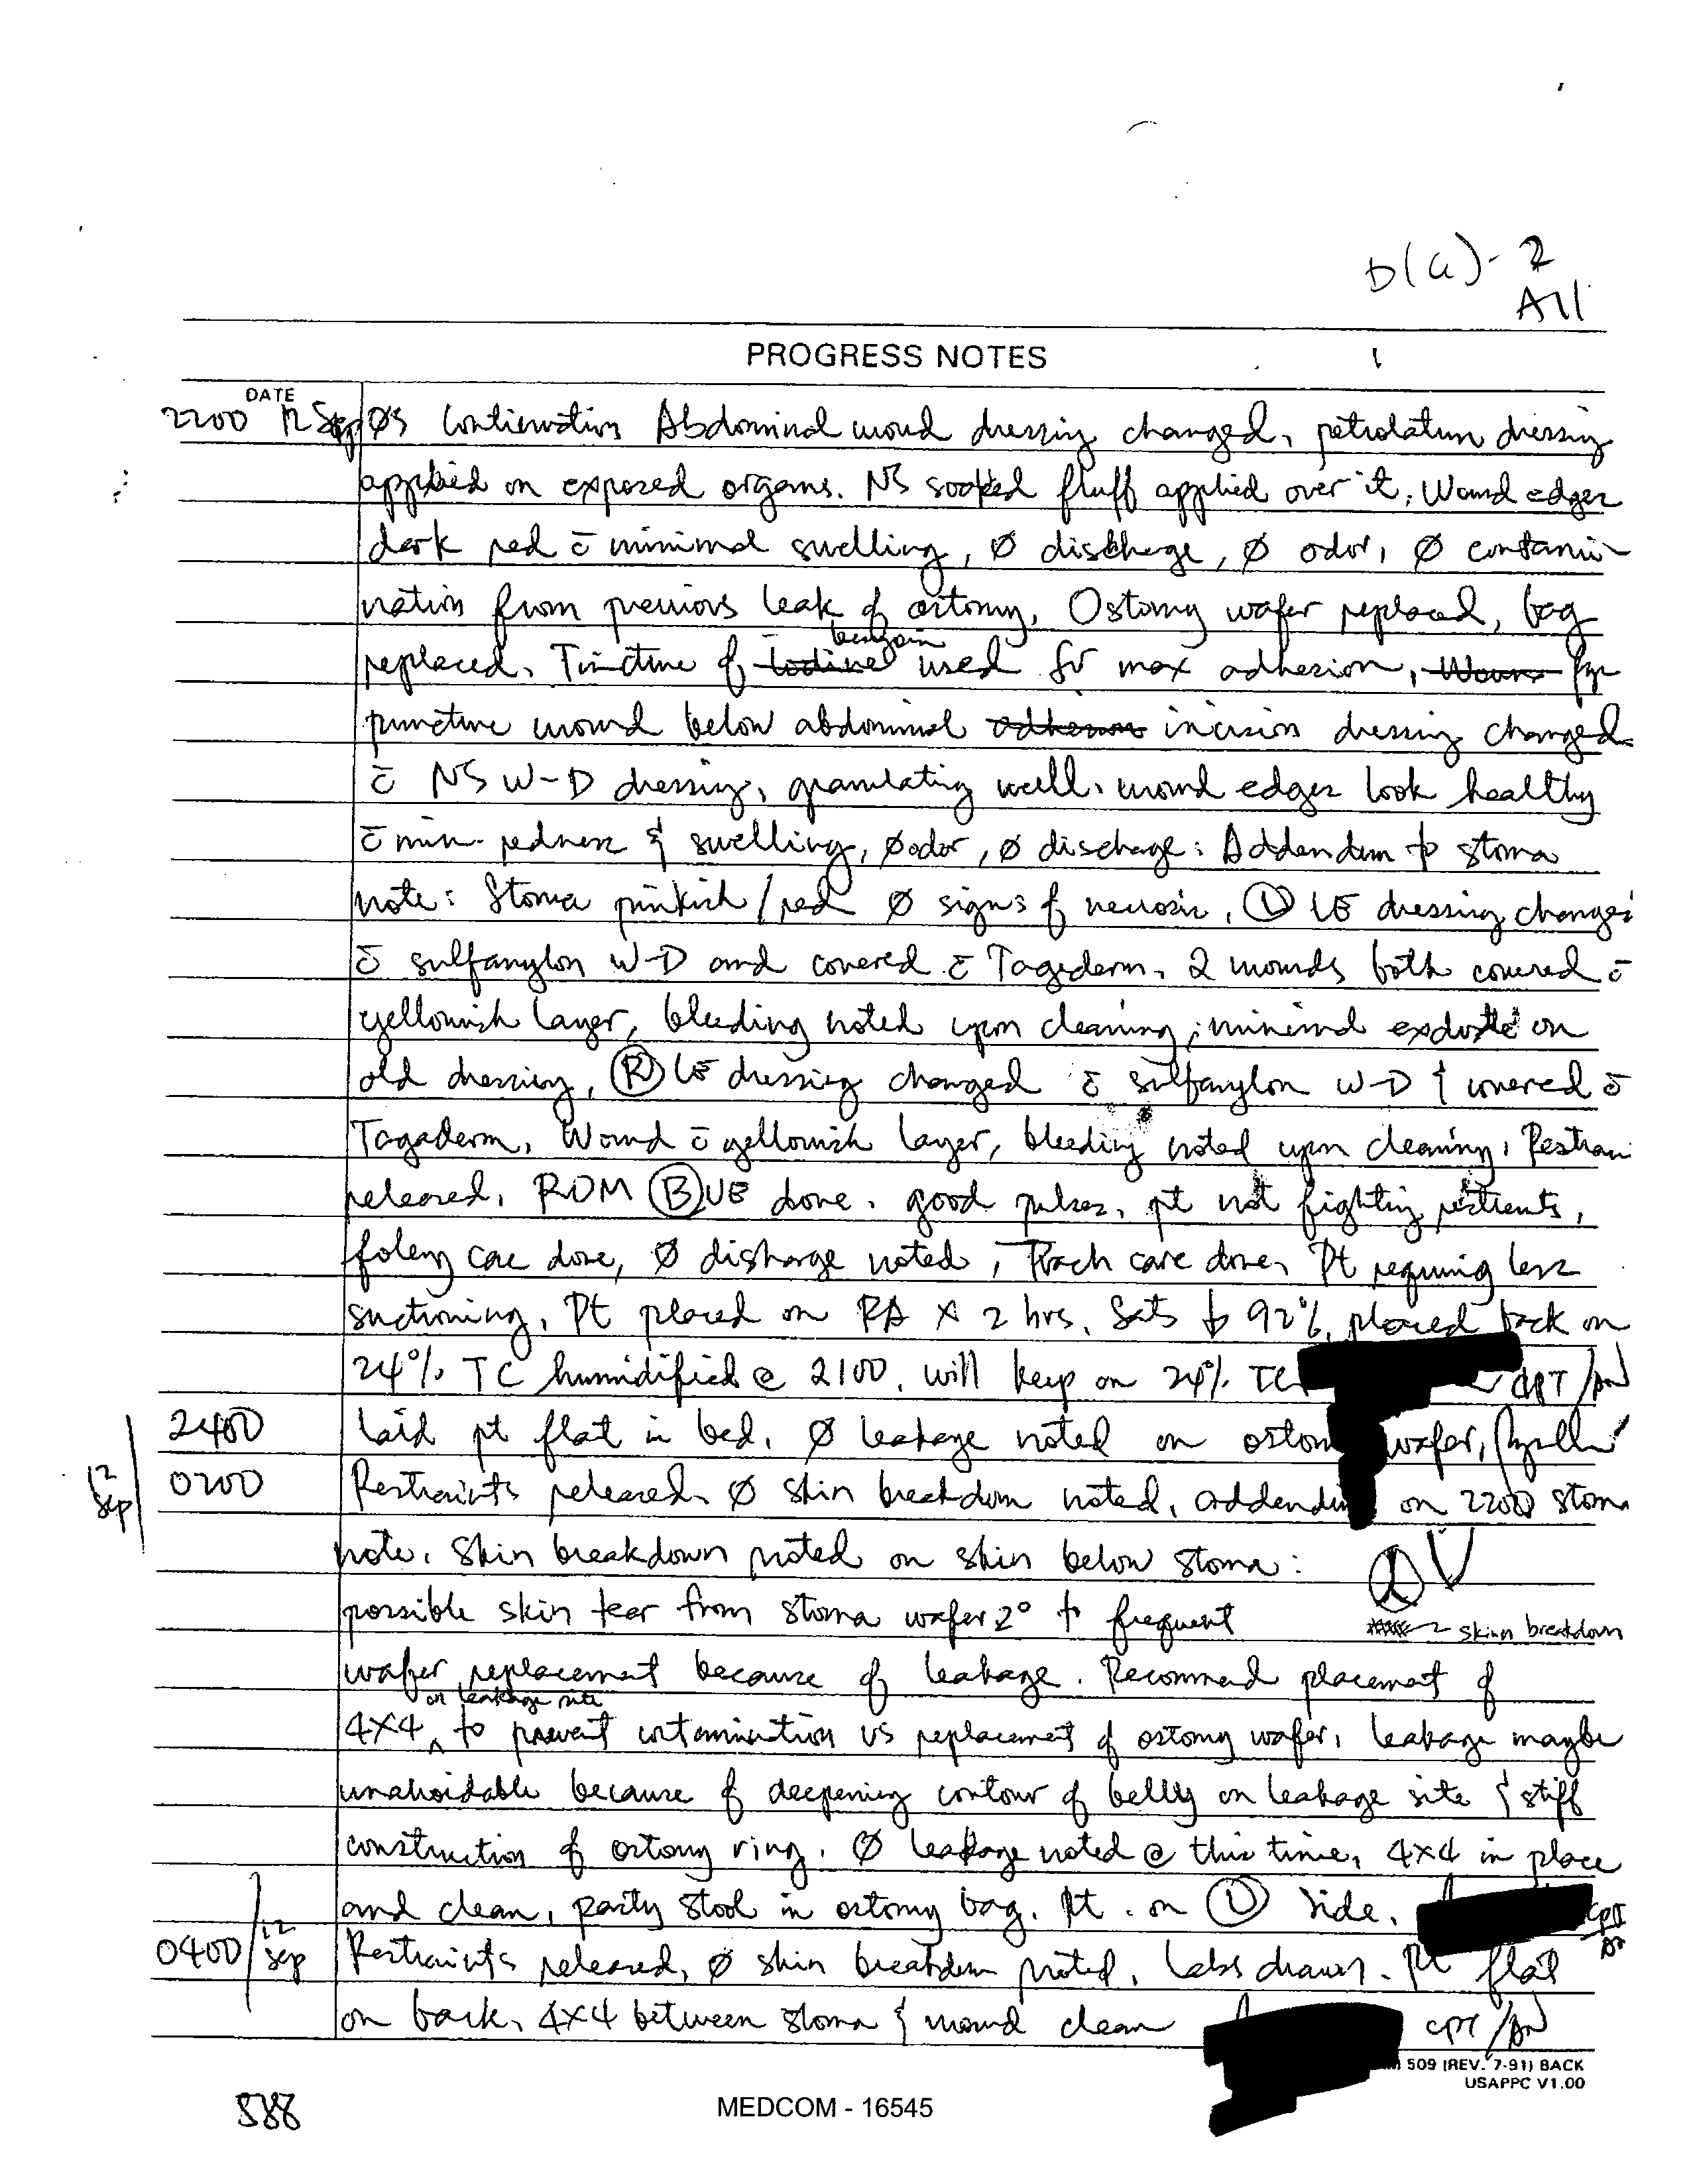 b(6)-2
All
PROGRESS NOTES
DATE
2200 12 Sep 03 Continuation Abdominal wound dressing changed, petrolatum dressing
applied on exposed organs. NS soaked fluff applied over it. Wound edges
dark red c̄ minimal swelling, Ø discharge, Ø odor, Ø contami-
nation from previous leak of ostomy. Ostomy wafer replaced, bag
replaced. Tincture of Iodine benzoin used for max adhesion, Woun
puncture wound below abdominal incision dressing changed
c̄ NS W-D dressing, granulating well. wound edges look healthy
c̄ min. redness & swelling, Ø odor, Ø discharge: Addendum to stoma
note: Stoma pinkish/red Ø signs of necrosis. Ⓛ LE dressing changed
c̄ sulfamylon W-D and covered c̄ Tagederm. 2 wounds both covered c̄
yellowish layer, bleeding noted upon cleaning; minimal exudate on
old dressing. Ⓡ LE dressing changed c̄ sulfamylon W-D & covered c̄
Tagaderm. Wound c̄ yellowish layer, bleeding noted upon cleaning. Restrain
released. ROM Ⓑ UE done. good pulses, pt not fighting
foley care done, Ø discharge noted, Trach care done. Pt requiring less
suctioning. Pt placed on RA x 2 hrs. Sats ↓ 92%, placed back on
24% TC humidified @ 2100. will keep on 24% TC CPT/AN
2400 laid pt flat in bed. Ø leakage noted on ostomy wafer,
12 Sep 0200 Restraints released. Ø skin breakdown noted. addendum on 2200 stoma
note. Skin breakdown noted on skin below stoma:
possible skin tear from stoma wafer 2° to frequent
skin breakdown
wafer replacement because of leakage. Recommend placement of
4x4 on leakage site to prevent contamination vs replacement of ostomy wafer. leakage maybe
unavoidable because of deepening contour of belly on leakage site & stiff
construction of ostomy ring. Ø leakage noted @ this time, 4x4 in place
and clean, pasty stool in ostomy bag. Pt. on Ⓛ side. CPT AN
0400/12 Sep Restraints released, Ø skin breakdown noted. Labs drawn. Pt flat
on back. 4x4 between stoma & wound clean CPT/AN
509 (REV. 7-91) BACK
USAPPC V1.00
588
MEDCOM - 16545